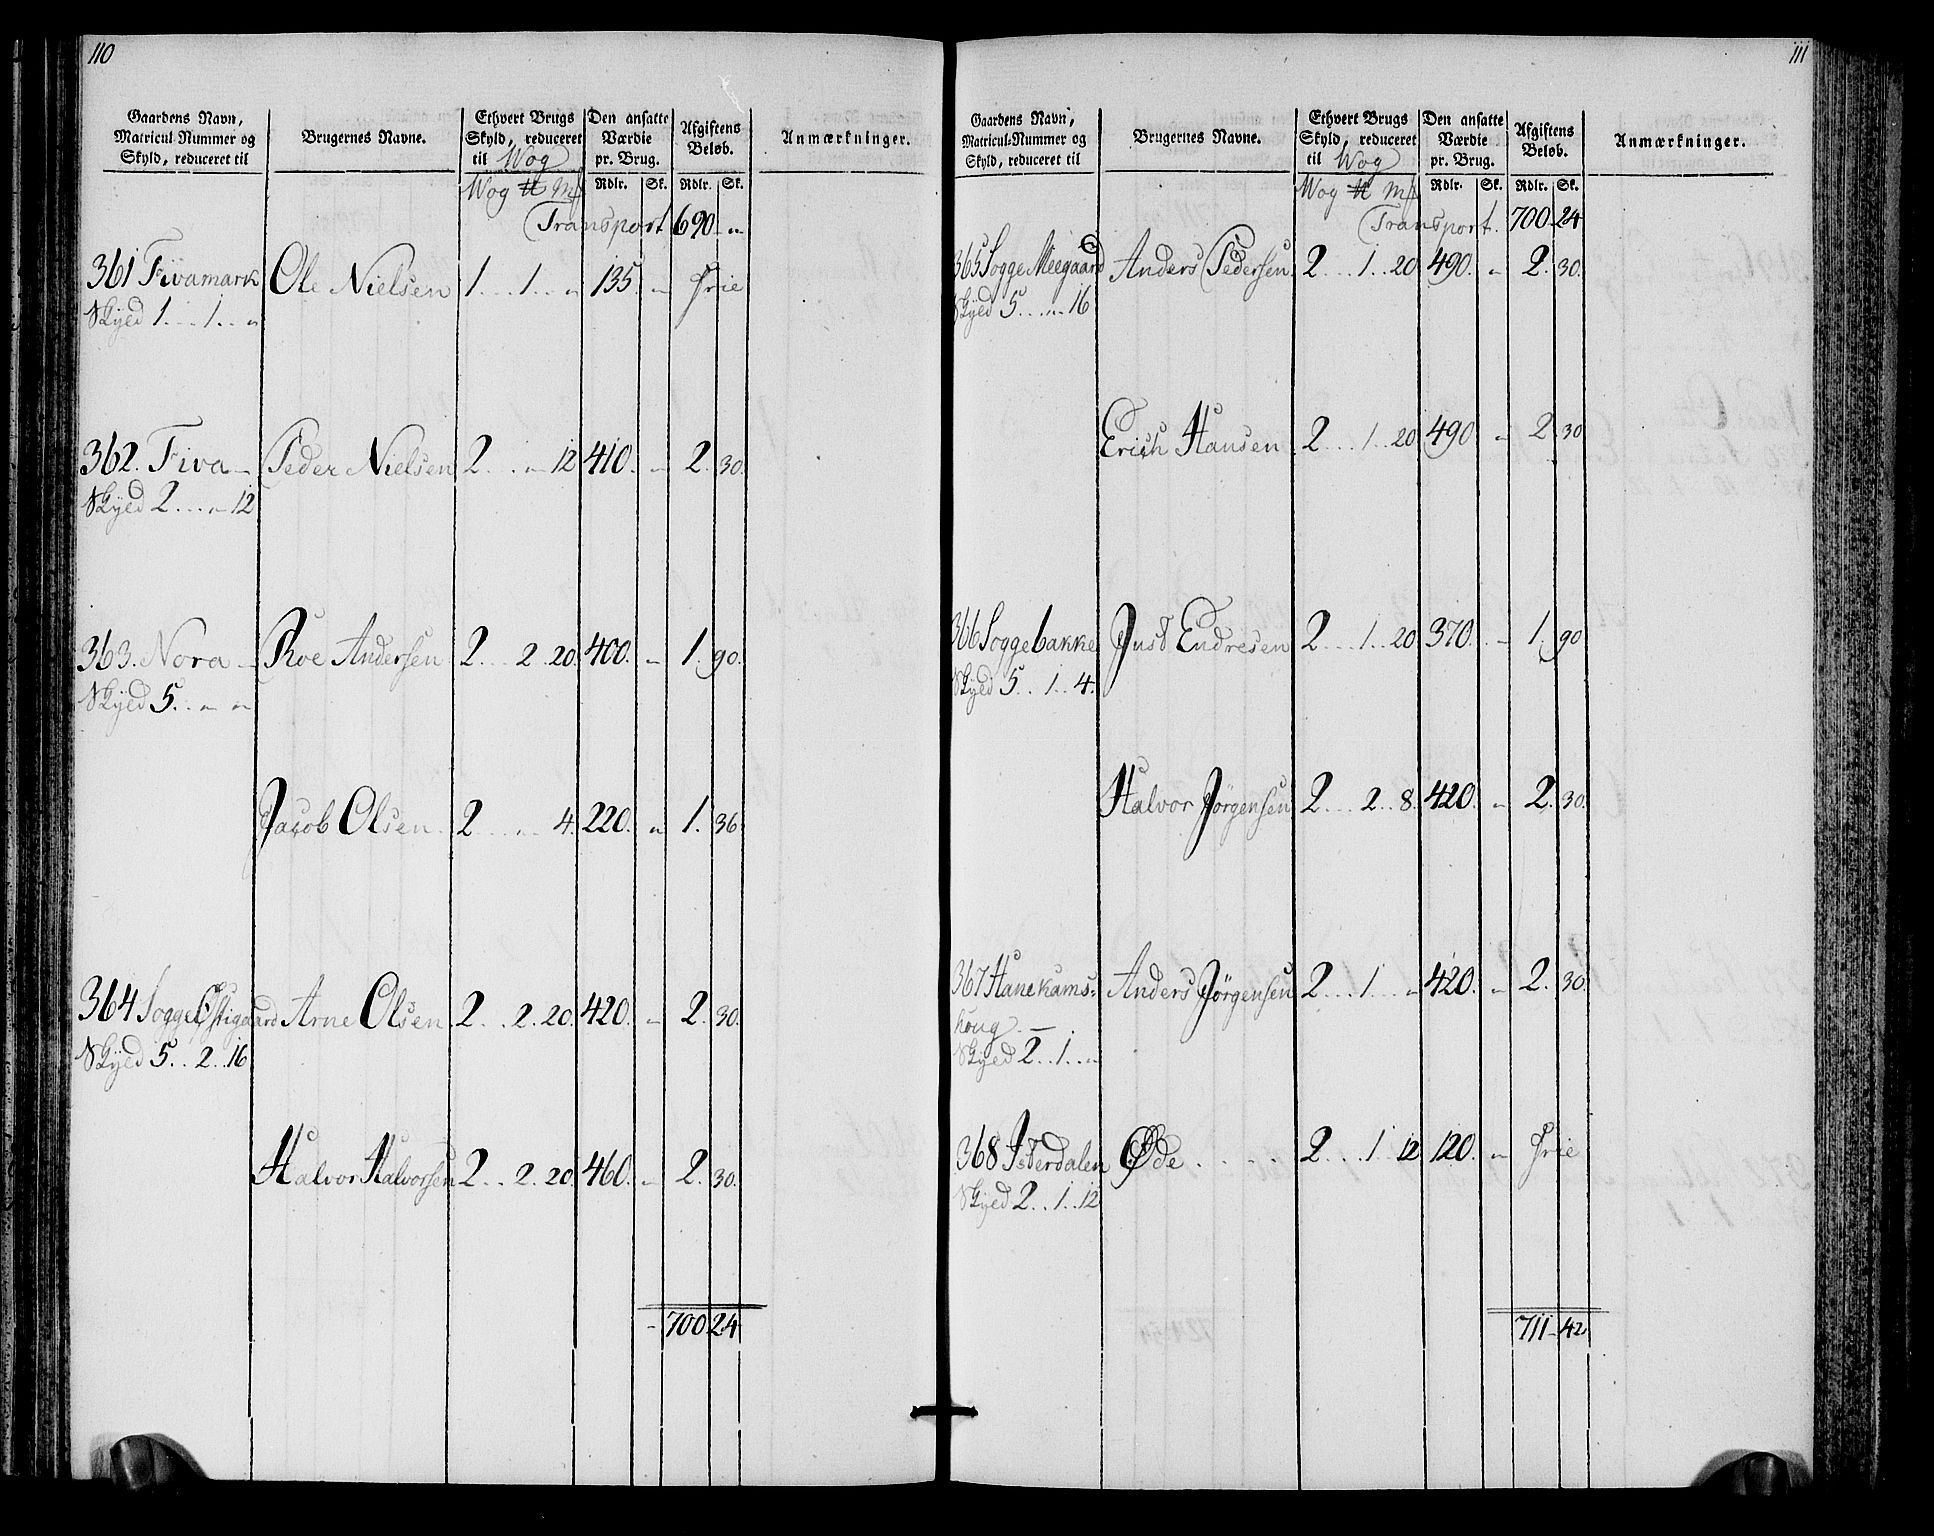 110
Gaardens Navn, Matricul-Nummer og Skyld, reduceret til | Brugernes Navne. | Ethvert Brugs Skyld, reduceret til Wog | Den ansatte Værdie pr. Brug. | Afgiftens Beløb. | Anmærkninger.
Wog ℔ Mk | Rdlr. | Sk. | Rdlr. | Sk.
Transport 690 „
361 Fivamark Ole Nielsen 1 . . . 1 . . „ 135 „ Frie
Skyld 1 . . . 1 . . „
362. Fiva Peder Nielsen 2 . . „ 12 410. „ 2. 30.
Skyld 2 . . . „ 12
363. Nora Roe Andersen 2 . . . 2 . 20. 400. „ 1. 90.
Skyld 5. . „ „
Jacob Olsen. 2 . . . „ 4. 220. „ 1. 36.
364 Sogge Østigaard Arne Olsen 2 . . 2. 20. 420. „ 2. 30.
Skyld 5 . . 2 . . 16
Halvor Halvorsen 2 . . 2. 20. 460. „ 2. 30.
700 24
111
Gaardens Navn, Matricul-Nummer og Skyld, reduceret til | Brugernes Navne. | Ethvert Brugs Skyld, reduceret til Wog | Den ansatte Værdie pr. Brug. | Afgiftens Beløb. | Anmærkninger.
Wog ℔ Mk | Rdlr. | Sk. | Rdlr. | Sk.
Transport. 700 24
365 Sogge Meegaard Anders Pedersen. 2 . . . 1 . . 20 490. „ 2. 30.
Skyld 5 . . „ 16
Erich Hansen. 2 . . . 1 . . 20 490 „ 2 30
366 Soggebakke Just Endresen 2 . . . 1 . . 20 370. „ 1. 90
Skyld 5 . . 1 . . 4.
Halvor Jørgensen 2 . . . 2 . . 8. 420. „ 2. 30.
367 Hanekams- Anders Jörgensen 2 . . . 1 . . „ 420. „ 2. 30.
houg. —
Skyld 2 . . 1 . . „
368 Isterdalen Øde . . . . 2 . . . 1 12 120. „ Frie
Skyld 2 . . 1 . . 12
711 42